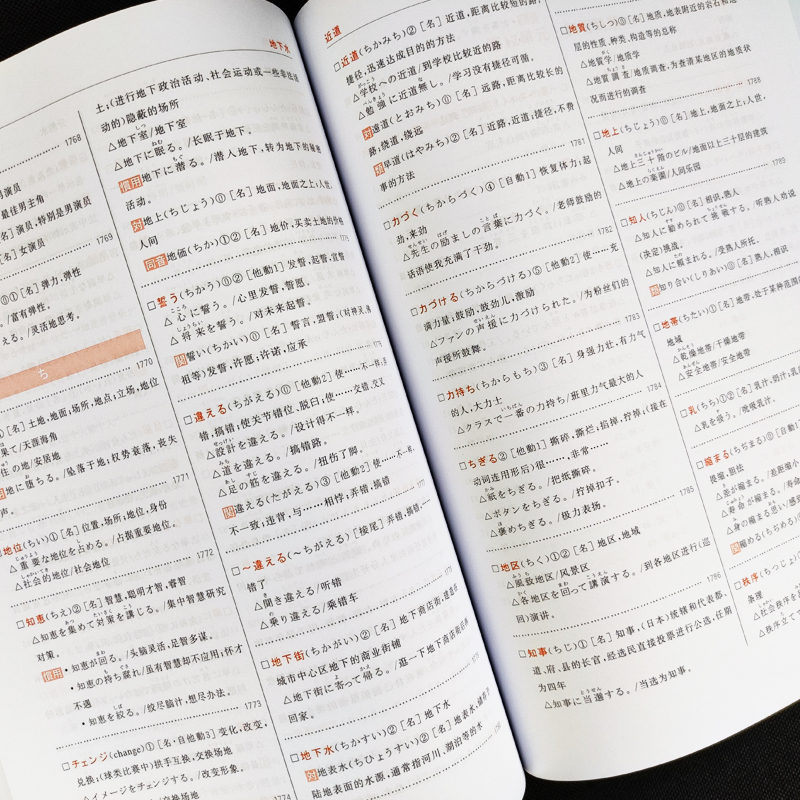 地下水
1768
男演员
最佳男主角
名］演员,特别是男演员
名］女演员
1769
①［名］弹力,弹性
/富有弹性。
える。/灵活地思考。
ち
1770
［名］土地,地面;场所,地点;立场,地位
果て/天涯海角
住の地/安居地
地に堕ちる。/坠落于地;权势衰落,丧失
声。
1771
地位(ちい)①［名］位置,场所;地位,身份
△重要な地位を占める。/占据重要地位。
△社会的地位/社会地位
1772
□知恵(ちえ)②［名］智慧,聪明才智,睿智
△知恵を集めて対策を講じる。/集中智慧研究
对策。
慣用 •知恵が回る。/头脑灵活,足智多谋。
•知恵の持ち腐れ/虽有智慧却不应用;怀才
不遇
•知恵を絞る。/绞尽脑汁,想尽办法。
1773
□チェンジ(change)①［名·自他動3］变化,改变,
兑换;(球类比赛中)拱手互换,交换场地
△イメージをチェンジする。/改变形象。
/交换场地
1774
土;(进行地下政治活动、社会运动或一些非法活
动的)隐蔽的场所
△地下室/地下室
△地下に眠る。/长眠于地下。
慣用 地下に潜る。/潜入地下,转为地下的秘密
活动。
対 地上(ちじょう)①［名］地面,地面之上;人世,
人间
同音 地価(ちか)①②［名］地价,买卖土地的价格
□誓う(ちかう)⓪②［他動1］发誓,起誓,宣誓
△心に誓う。/心里发誓,誓愿。
△将来を誓う。/对未来起誓。
関 誓い(ちかい)⓪［名］誓言,盟誓;(对神灵、佛
祖等)发誓,许愿;许诺,应承
□違える(ちがえる)⓪［他動2］使……不一样;弄
错,搞错;使关节错位、脱臼;使……交错,交叉
△設計を違える。/设计得不一样。
△道を違える。/搞错路。
△足の筋を違える。/扭伤了脚。
関 違える(たがえる)③［他動2］使……不一样,
不一致;违背,与……相悖;弄错,搞错
□～違える(～ちがえる)［接尾］弄错,搞错……
错了
△聞き違える/听错
△乗り違える/乘错车
□地下街(ちかがい)②［名］地下商店街,建造在
城市中心区地下的商业街铺
△地下街に寄って帰る。/逛一下地下商店街后再
回家。
□地下水(ちかすい)②［名］地下水
対 地表水(ちひょうすい)②［名］地表水,储存于
陆地表面的水源,通常指河川、湖泊等的水
近道
□近道(ちかみち)②［名］近道,距离比较短的路;
捷径,迅速达成目的的方法
△学校への近道/到学校比较近的路
△勉強に近道無し。/学习没有捷径可循。
対 遠道(とおみち)⓪［名］远路,距离比较长的
路;绕道,绕远
類 早道(はやみち)②［名］近路,近道;捷径,不费
事的方法
1781
□力づく(ちからづく)④［自動1］恢复体力;起
劲,来劲
△先生の励ましの言葉に力づく。/老师鼓励的
话语使我充满了干劲。
1782
□力づける(ちからづける)⑤［他動2］使……充
满力量;鼓励,鼓劲儿,激励
△ファンの声援に力づけられた。/为粉丝们的
声援所鼓舞。
1783
□力持ち(ちからもち)③［名］身强力壮,有力气
的人,大力士
△クラスで一番の力持ち/班里力气最大的人
1784
□ちぎる②［他動1］撕碎,撕烂;掐掉,拧掉;(接在
动词连用形后)很……,非常……
△紙をちぎる。/把纸撕碎。
△ボタンをちぎる。/拧掉扣子。
△褒めちぎる。/极力表扬。
1785
□地区(ちく)①②［名］地区,地域
△風致地区/风景区
△各地区を回って講演する。/到各地区进行(巡
回)演讲。
1786
□知事(ちじ)①［名］知事,(日本)统辖和代表都、
道、府、县的长官,经选民直接投票进行公选,任期
为四年
△知事に当選する。/当选为知事。
□地質(ちしつ)⓪［名］地质,地表附近的岩石和地
层的性质、种类、构造等的总称
△地質学/地质学
△地質調査/地质调查,为查清某地区的地质状
况而进行的调查
1788
□地上(ちじょう)⓪［名］地上,地面之上;人世,
人间
△地上三十階のビル/地面以上三十层的建筑
△地上の楽園/人间乐园
1789
□知人(ちじん)⓪［名］相识,熟人
△知人に勧められて挑戦する。/听熟人劝说
(决定)挑战。
△知人に頼まれる。/受熟人所托。
類 知り合い(しりあい)⓪［名］熟人,相识
□地帯(ちたい)①［名］地带,处于某种范围的
地域
△乾燥地帯/干燥地带
△安全地帯/安全地带
□乳(ちち)①②［名］乳汁,奶汁;乳房
△乳を吸う。/吮吸乳汁。
□縮まる(ちぢまる)⓪［自動1］
畏缩,胆怯
△差が縮まる。/差距缩小
△寿命が縮まる。/寿命
△身の縮まる思い/感到
関 縮める(ちぢめる)
□秩序(ちつじょ)
条理
△社会秩序を
△秩序立て